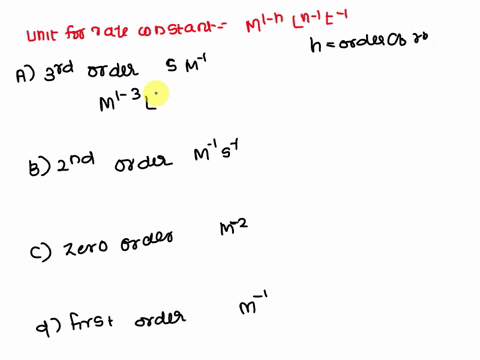 Unit for rate constant = M^1-n L^n-1 t^-1
n = order Of
A) 3rd order S M^-1
M^1-3 L
B) 2nd order M^-1 s^-1
C) zero order M^-2
d) first order m^-1